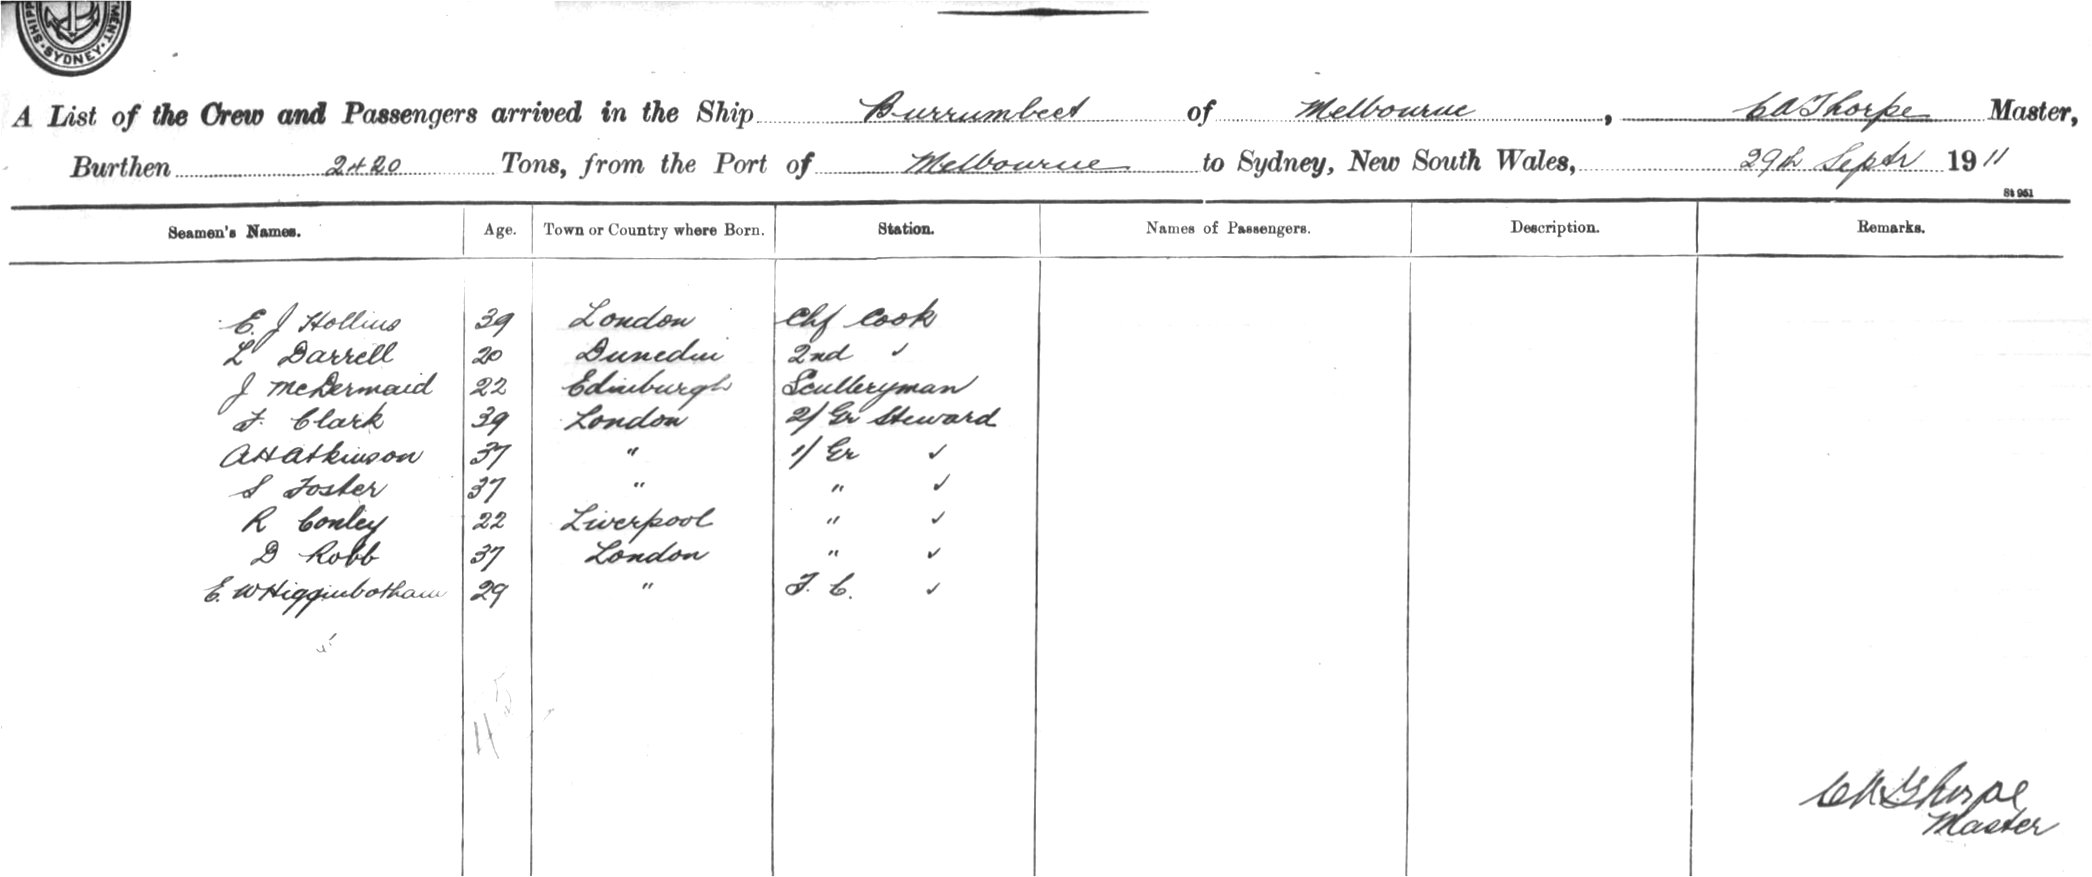 SHIPP MENT
SYDNEY
A List of the Crew and Passengers arrived in the Ship Burrumbeet of Melbourne, C A Thorpe Master,
Burthen 2420 Tons, from the Port of Melbourne to Sydney, New South Wales, 29th Septr 1911
St 951
Seamen's Names. Age. Town or Country where Born. Station. Names of Passengers. Description. Remarks.
E. J Hollins 39 London Chf Cook
L Darrell 20 Dunedin 2nd ✓
J McDermaid 22 Edinburgh Sculleryman
F. Clark 39 London 2/ Gr Steward
A H Atkinson 37 " 1/ Gr ✓
S Foster 37 " " ✓
R Conley 22 Liverpool " ✓
D Robb 37 London " ✓
E. W Higginbotham 29 " F. C. ✓
C A Thorpe
Master